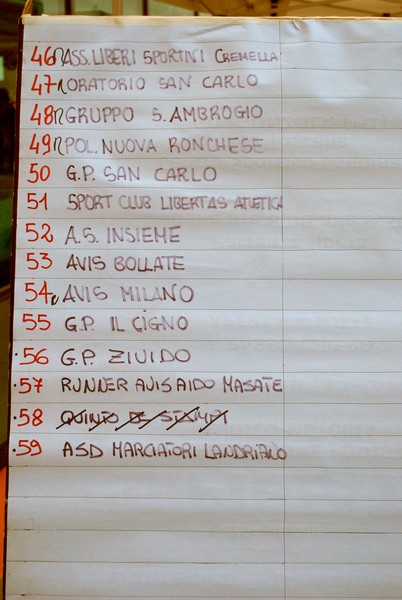 46 ASS. LIBERI SPORTIVI CREMELLA
47 ORATORIO SAN CARLO
48 GRUPPO S. AMBROGIO
49 POL. NUOVA RONCHESE
50 G.P. SAN CARLO
51 SPORT CLUB LIBERTAS ATLETICA
52 A.S. INSIEME
53 AVIS BOLLATE
54 AVIS MILANO
55 G.P. IL CIGNO
·56 G.P. ZIVIDO
·57 RUNNER AVIS AIDO MASATE
·58 QUINTO DE STAMPI
·59 ASD MARCIATORI LANDRIANO